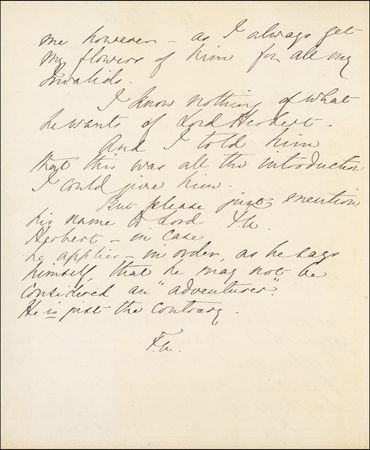 me however - as I always get
my flowers of him for all my
Invalids.
I know nothing of what
he wants of Lord Herbert
And I told him
that this was all the introduction
I could give him.
But please just mention
his name to Lord
Herbert - in case
he applies - in order, as he says
himself, that he may not be
considered an "adventurer".
He is just the contrary.
F.N.